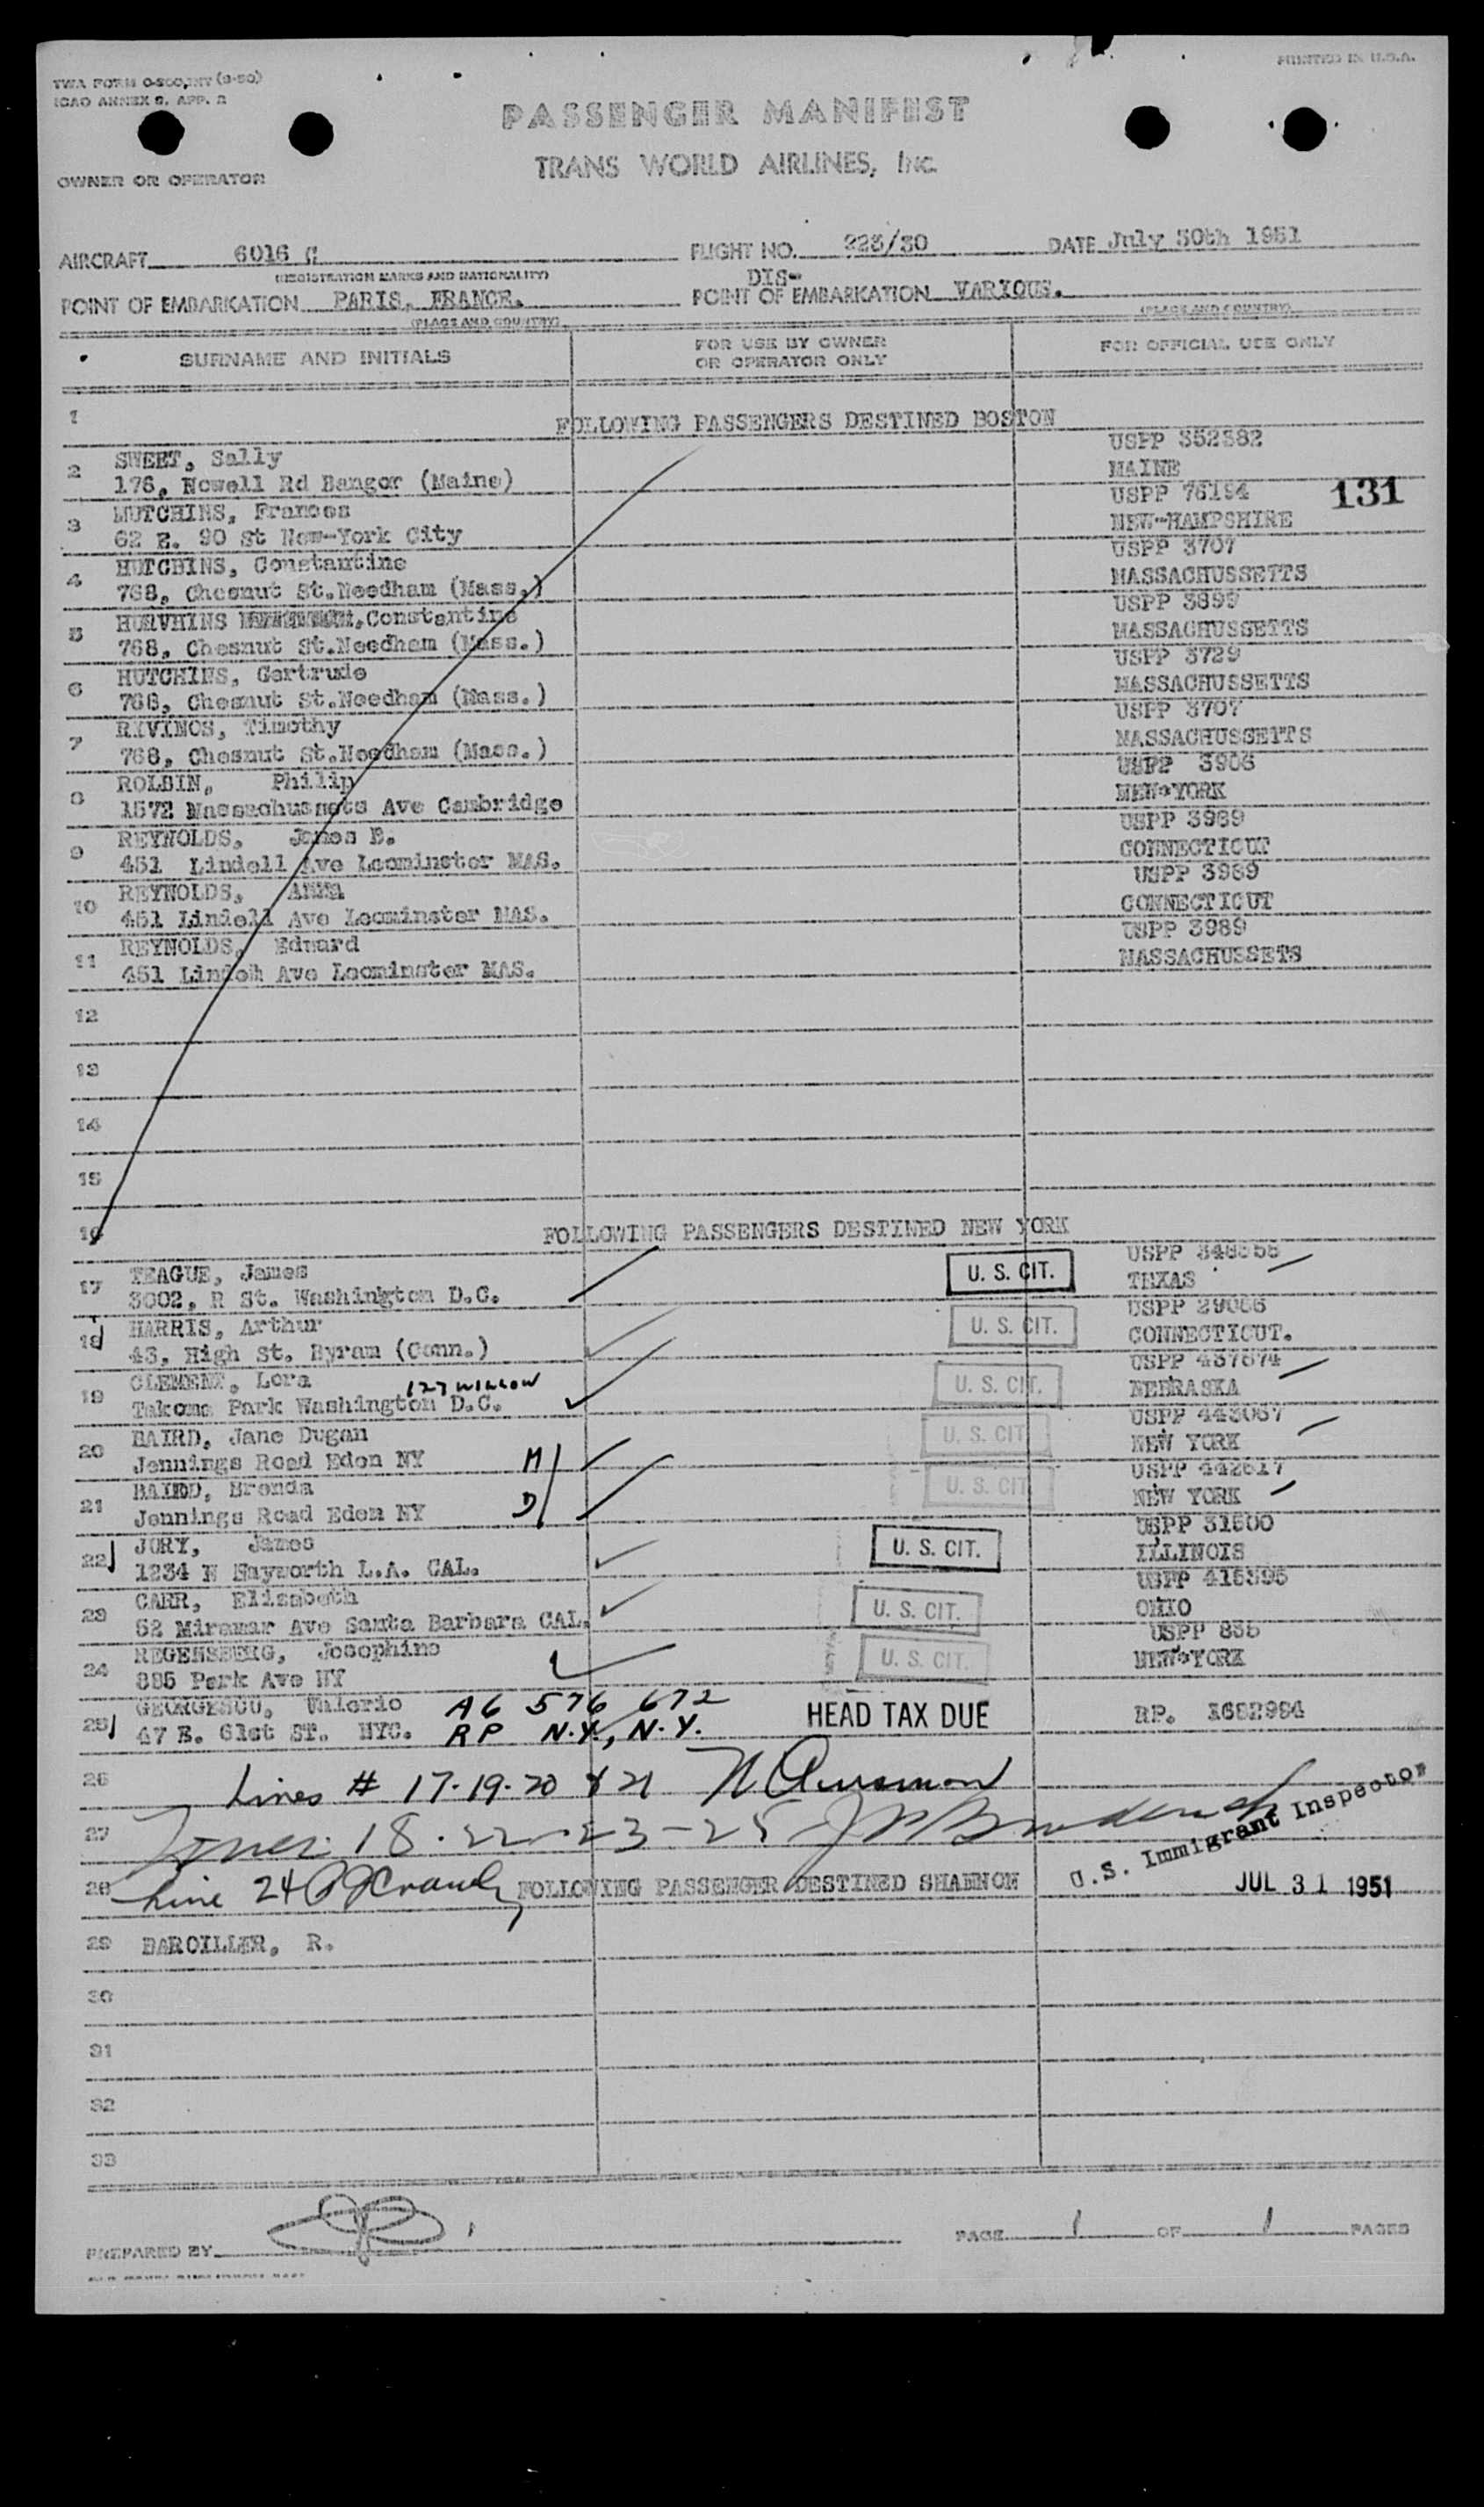 TWA FORM O-200,INT (9-50)
ICAO ANNEX 9, APP. 2
PRINTED IN U.S.A.
PASSENGER MANIFEST
TRANS WORLD AIRLINES, Inc.
OWNER OR OPERATOR
AIRCRAFT 6016 C FLIGHT NO. 223/30 DATE July 30th 1951
(REGISTRATION MARKS AND NATIONALITY)
DIS-
POINT OF EMBARKATION PARIS, FRANCE. POINT OF EMBARKATION VARIOUS.
(PLACE AND COUNTRY) (PLACE AND COUNTRY)
SURNAME AND INITIALS
FOR USE BY OWNER
OR OPERATOR ONLY
FOR OFFICIAL USE ONLY
1 FOLLOWING PASSENGERS DESTINED BOSTON
USPP 352382
2 SWEET, Sally
176, Howell Rd Bangor (Maine) MAINE
USPP 76194 131
3 HUTCHINS, Frances
62 E. 90 St New-York City NEW-HAMPSHIRE
USPP 3707
4 HUTCHINS, Constantine
768, Chesnut St.Needham (Mass.) MASSACHUSSETTS
USPP 3899
5 HUTVHINS Constantine
768, Chesnut St.Needham (Mass.) MASSACHUSSETTS
USPP 3729
6 HUTCHINS, Gertrude
768, Chesnut St.Needham (Mass.) MASSACHUSSETTS
USPP 3707
7 RIVINOS, Timothy
768, Chesnut St.Needham (Mass.) MASSACHUSSETTS
USPP 3906
8 ROLBIN, Philip
1572 Massachussets Ave Cambridge NEW-YORK
USPP 3989
9 REYNOLDS, James B.
451 Lindell Ave Leominster MAS. CONNECTICUT
USPP 3989
10 REYNOLDS, Anna
451 Lindell Ave Leominster MAS. CONNECTICUT
USPP 3989
11 REYNOLDS, Edward
451 Lindelh Ave Leominster MAS. MASSACHUSSETS
12
13
14
15
16 FOLLOWING PASSENGERS DESTINED NEW YORK
USPP 348555
17 TEAGUE, James U. S. CIT.
3002, R St. Washington D.C. TEXAS
USPP 29066
18 HARRIS, Arthur U. S. CIT.
43, High St. Byram (Conn.) CONNECTICUT.
USPP 437574
19 CLEMENT, Lora 127 WILLOW U. S. CIT.
Takoma Park Washington D.C. NEBRASKA
USPP 443067
20 BAIRD, Jane Dugan U. S. CIT
Jennings Road Eden NY M NEW YORK
USPP 442617
21 BAIRD, Brenda U. S. CIT
Jennings Road Eden NY D NEW YORK
USPP 31500
22 JORY, James U. S. CIT.
1234 N Hayworth L.A. CAL. ILLINOIS
USPP 415395
23 CARR, Elizabeth U. S. CIT.
52 Miramar Ave Santa Barbara CAL. OHIO
USPP 835
24 REGENSBERG, Josephine U. S. CIT.
885 Park Ave NY NEW-YORK
25 GEORGESCU, Valerio A6 576 672 HEAD TAX DUE RP. 1682994
47 E. 61st ST. NYC. RP N.Y., N.Y.
26 Lines # 17-19-20 & 21
27 Lines 18-22-23-25
U.S. Immigrant Inspector
28 Line 24 FOLLOWING PASSENGER DESTINED SHANNON JUL 31 1951
29 BAROILLER, R.
30
31
32
33
PREPARED BY PAGE 1 OF 1 PAGES